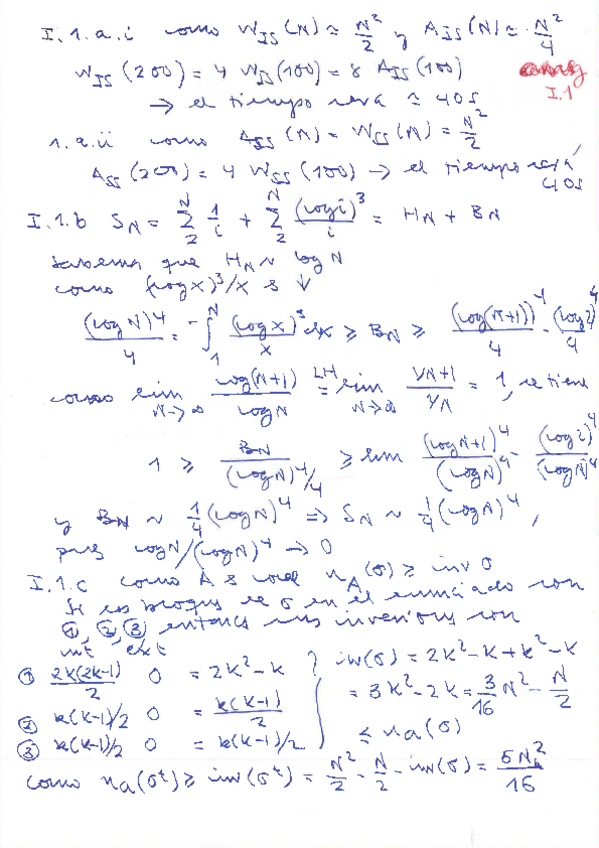 I.1.a.i como W_IS(N) ≃ N²/2 y A_IS(N) ≃ N²/4
W_IS(200) = 4 W_IS(100) = 8 A_IS(100)
I.1
→ el tiempo será ≃ 40s
1.a.ii como A_SS(N) = W_SS(N) = N²/2
A_SS(200) = 4 W_SS(100) → el tiempo será
40s
I.1.b S_N = Σ_2^N 1/i + Σ_2^N (log i)³/i = H_N + B_N
sabemos que H_N ~ log N
como (log x)³/x es ↓
(log N)⁴/4 = ∫_1^N (log x)³/x dx ≥ B_N ≥ (log(N+1))⁴/4 - (log 2)⁴/4
como lim_{N→∞} log(N+1)/log N =^{LH} lim_{N→∞} 1/N+1 / 1/N = 1, se tiene
1 ≥ B_N/(log N)⁴/4 ≥ lim (log N+1)⁴/(log N)⁴ - (log 2)⁴/(log N)⁴
y B_N ~ 1/4 (log N)⁴ ⇒ S_N ~ 1/4 (log N)⁴,
pues log N/(log N)⁴ → 0
I.1.c como A es local n_A(σ) ≥ inv σ
Si los bloques de σ en el enunciado son
①, ②, ③, entonces sus inversiones son
int ext
① 2k(2k-1)/2 0 = 2k² - k
inv(σ) = 2k² - k + k² - k
② k(k-1)/2 0 = k(k-1)/2
= 3k² - 2k = 3/16 N² - N/2
③ k(k-1)/2 0 = k(k-1)/2
≤ n_A(σ)
como n_A(σᵗ) ≥ inv(σᵗ) = N²/2 - N/2 - inv(σ) = 5N²/16